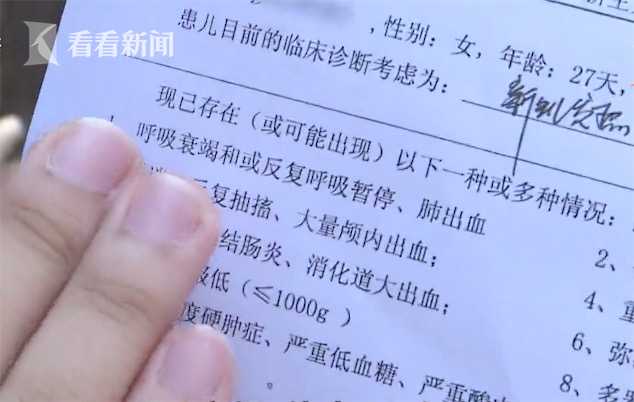 看看新闻
，性别：女，年龄：27天，
患儿目前的临床诊断考虑为：
现已存在（或可能出现）以下一种或多种情况：
呼吸衰竭和或反复呼吸暂停、肺出血
2、
反复抽搐、大量颅内出血；
4、重
结肠炎、消化道大出血；
6、弥
极低（≤1000g ）
8、多
度硬肿症、严重低血糖、严重酸
。